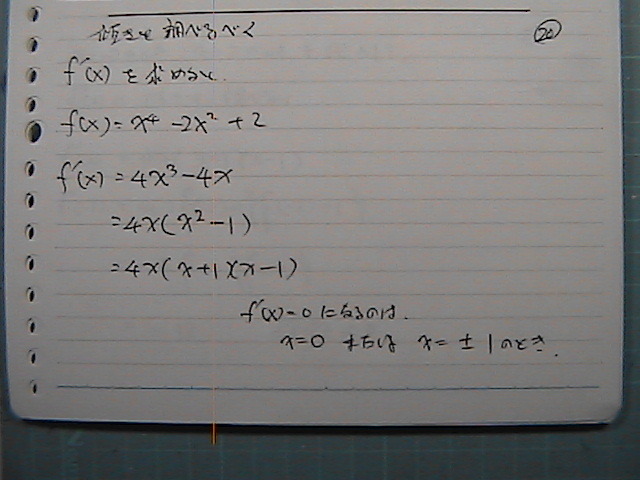 傾きを調べるべく
⑳
f'(x) を求めると
f(x) = x⁴ - 2x² + 2
f'(x) = 4x³ - 4x
= 4x(x² - 1)
= 4x(x+1)(x-1)
f'(x) = 0 になるのは、
x = 0 または x = ± 1 のとき、